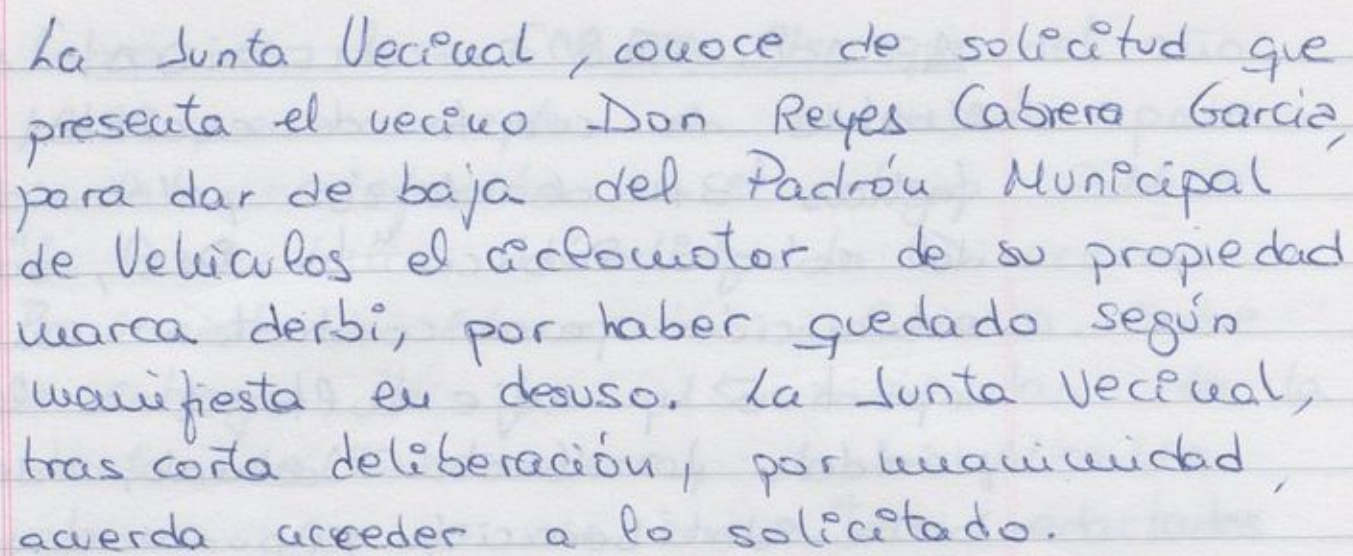 La Junta Vecinal, conoce de solicitud que
presenta el vecino Don Reyes Cabrera Garcia,
para dar de baja del Padrón Municipal
de Vehiculos el ciclomotor de su propiedad
marca derbi, por haber quedado según
manifiesta en desuso. La Junta Vecinal,
tras corta deliberación, por unanimidad,
acuerda acceder a lo solicitado.